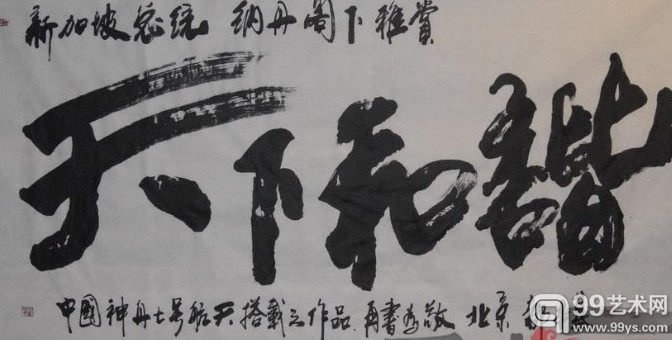 新加坡总统 纳丹阁下雅赏
天下和谐
中国神舟七号航天搭载之作品 再书为敬 北京
99艺术网
www.99ys.com